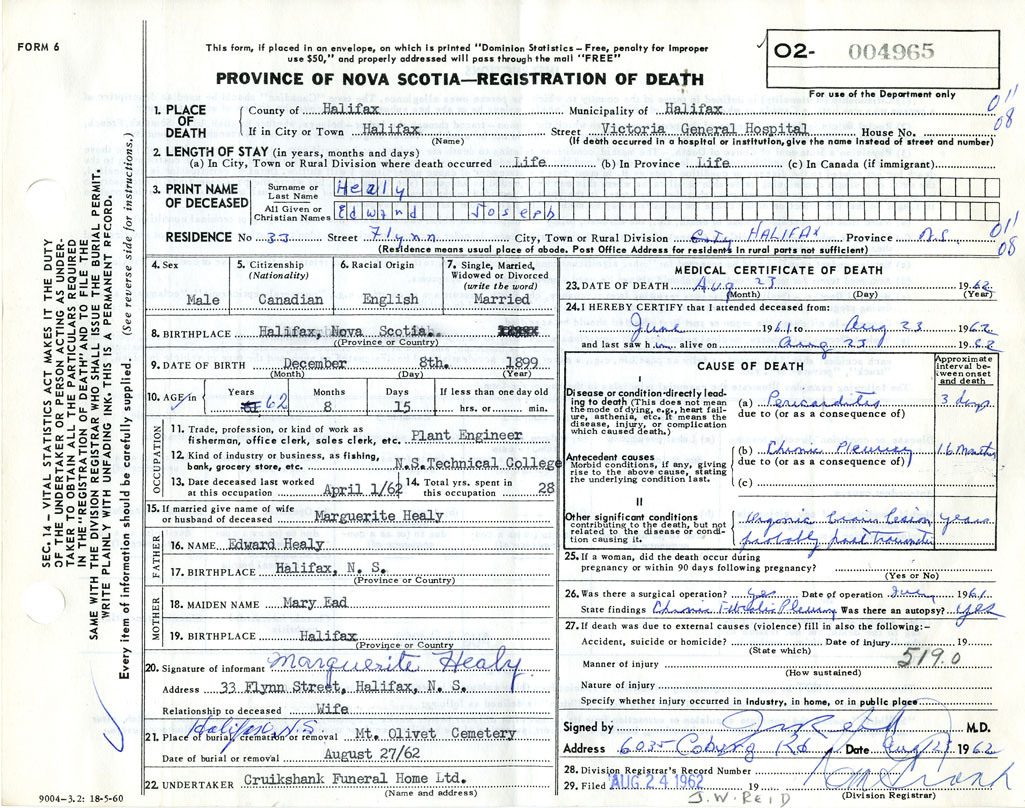 FORM 6
This form, if placed in an envelope, on which is printed "Dominion Statistics – Free, penalty for improper
use $50," and properly addressed will pass through the mail "FREE"
PROVINCE OF NOVA SCOTIA—REGISTRATION OF DEATH
O2- 004965
For use of the Department only
011
08
1. PLACE OF DEATH
County of Halifax Municipality of Halifax
If in City or Town Halifax Street Victoria General Hospital House No.
(Name) (If death occurred in a hospital or institution, give the name instead of street and number)
2. LENGTH OF STAY (in years, months and days)
(a) In City, Town or Rural Division where death occurred Life (b) In Province Life (c) In Canada (if immigrant)
3. PRINT NAME OF DECEASED
Surname or Last Name Healy
All Given or Christian Names Edward Joseph
RESIDENCE No 33 Street Flynn City, Town or Rural Division City HALIFAX Province N.S.
011
08
(Residence means usual place of abode. Post Office Address for residents in rural parts not sufficient)
4. Sex Male
5. Citizenship (Nationality) Canadian
6. Racial Origin English
7. Single, Married, Widowed or Divorced (write the word) Married
8. BIRTHPLACE Halifax, Nova Scotia.
(Province or Country)
9. DATE OF BIRTH December 8th. 1899
(Month) (Day) (Year)
10. AGE in Years 62 Months 8 Days 15 If less than one day old hrs. or min.
OCCUPATION
11. Trade, profession, or kind of work as
fisherman, office clerk, sales clerk, etc. Plant Engineer
12. Kind of industry or business, as fishing,
bank, grocery store, etc. N.S.Technical College
13. Date deceased last worked at this occupation April 1/62
14. Total yrs. spent in this occupation 28
15. If married give name of wife
or husband of deceased Marguerite Healy
FATHER
16. NAME Edward Healy
17. BIRTHPLACE Halifax, N. S.
(Province or Country)
MOTHER
18. MAIDEN NAME Mary Ead
19. BIRTHPLACE Halifax
(Province or Country
20. Signature of informant Marguerite Healy
Address 33 Flynn Street, Halifax, N. S.
Relationship to deceased Wife
Halifax N.S.
21. Place of burial, cremation or removal Mt. Olivet Cemetery
Date of burial or removal August 27/62
22. UNDERTAKER Cruikshank Funeral Home Ltd.
(Name and address)
MEDICAL CERTIFICATE OF DEATH
23. DATE OF DEATH Aug 23 1962
(Month) (Day) (Year)
24. I HEREBY CERTIFY that I attended deceased from:
June 1961 to Aug 23 1962
and last saw him alive on Aug 23 1962
CAUSE OF DEATH
Approximate interval between onset and death
I
Disease or condition directly leading to death (This does not mean the mode of dying, e.g., heart failure, asthenia, etc. It means the disease, injury, or complication which caused death.)
(a) Pericarditis 3 days
due to (or as a consequence of)
Antecedent causes
Morbid conditions, if any, giving rise to the above cause, stating the underlying condition last.
(b) Chronic Pleurisy 16 months
due to (or as a consequence of)
(c)
II
Other significant conditions
contributing to the death, but not related to the disease or condition causing it.
Organic brain lesion years
probably post traumatic
25. If a woman, did the death occur during
pregnancy or within 90 days following pregnancy?
(Yes or No)
26. Was there a surgical operation? yes Date of operation 1961
State findings Chronic Pleurisy Was there an autopsy? yes
27. If death was due to external causes (violence) fill in also the following:-
Accident, suicide or homicide? Date of injury 19
(State which)
Manner of injury 519.0
(How sustained)
Nature of injury
Specify whether injury occurred in industry, in home, or in public place
Signed by J W Reid M.D.
Address 6035 Coburg Rd Date Aug 23 1962
28. Division Registrar's Record Number
29. Filed AUG 24 1962 19
(Division Registrar)
J.W. REID
SEC. 14 – VITAL STATISTICS ACT MAKES IT THE DUTY
OF THE UNDERTAKER OR PERSON ACTING AS UNDER-
TAKER TO OBTAIN ALL THE PARTICULARS REQUIRED
IN THE "REGISTRATION OF DEATH" AND TO FILE THE
SAME WITH THE DIVISION REGISTRAR WHO SHALL ISSUE THE BURIAL PERMIT.
WRITE PLAINLY WITH UNFADING INK. THIS IS A PERMANENT RECORD.
Every item of information should be carefully supplied. (See reverse side for instructions.)
9004–3.2: 18-5-60